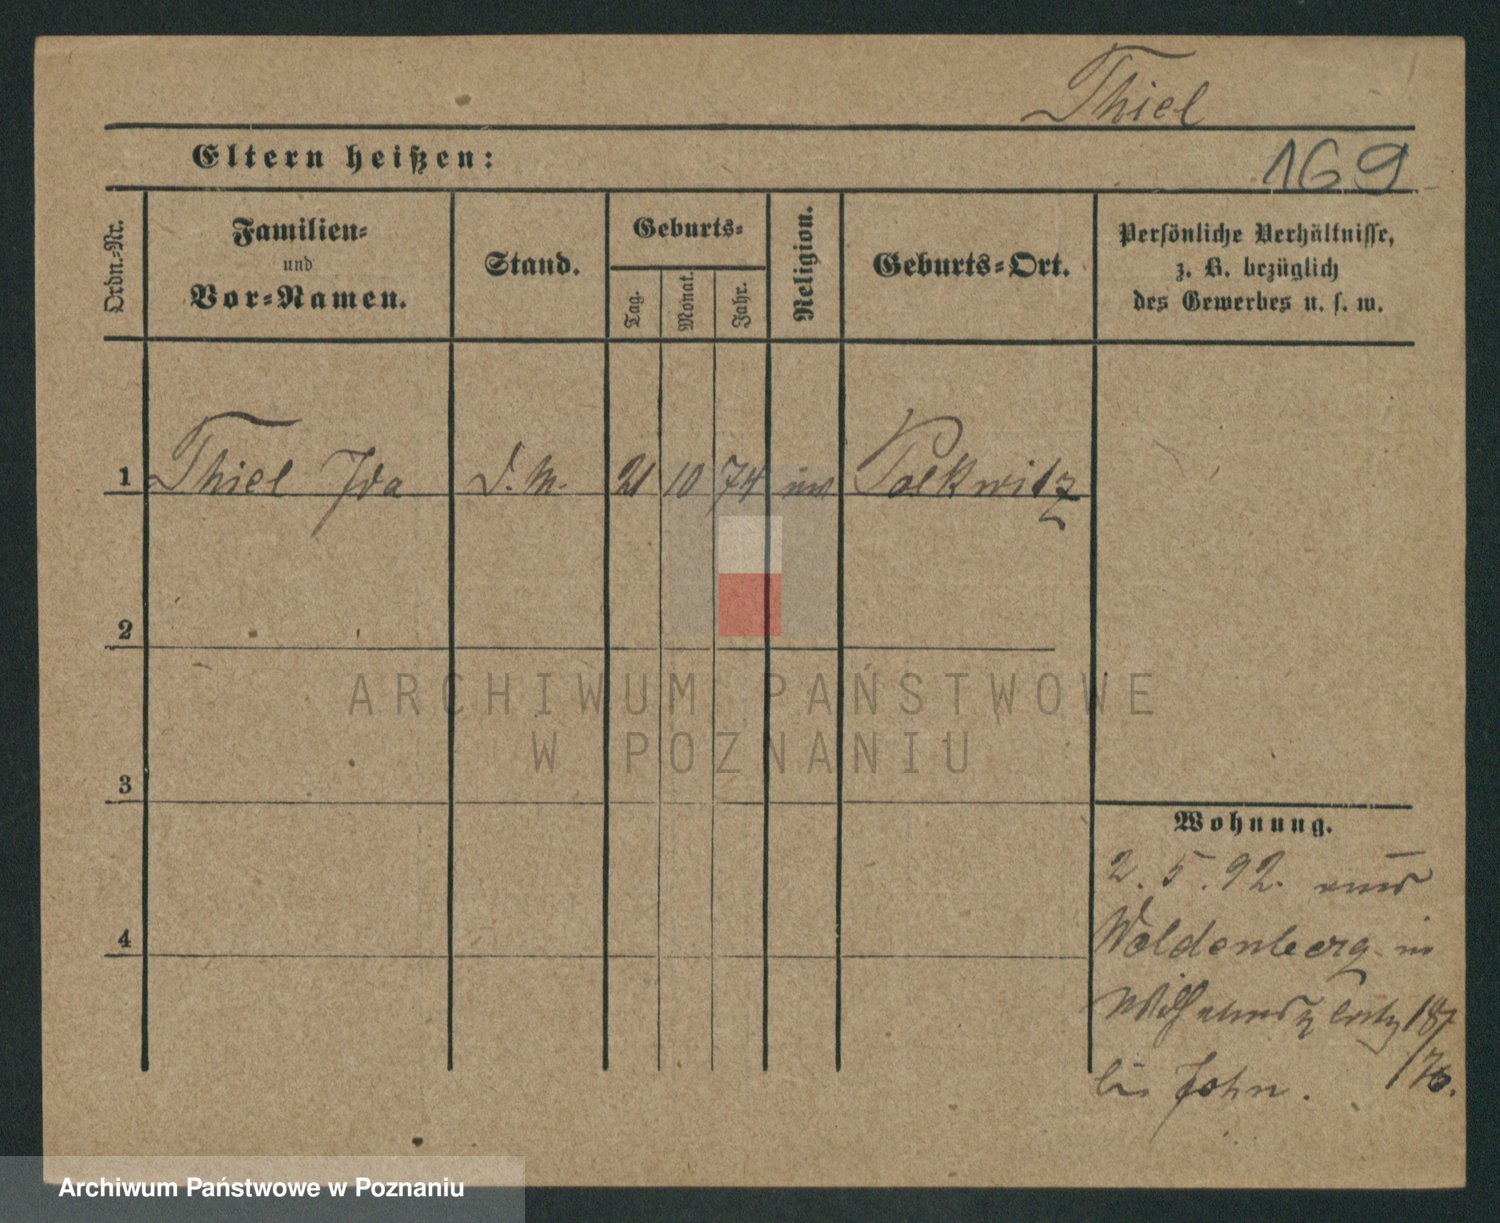 Thiel
Eltern heißen:
169
Ordn.-Nr.
Familien-
und
Vor-Namen.
Stand.
Geburts-
Tag.
Monat.
Jahr.
Religion.
Geburts-Ort.
Persönliche Verhältnisse,
z. B. bezüglich
des Gewerbes u. s. w.
1 Thiel Ida D. M. 21 10 74 Polkwitz
2
3
4
ARCHIWUM PAŃSTWOWE
W POZNANIU
Wohnung.
2. 5. 92. aus
Woldenberg in
18/
bei John.
Archiwum Państwowe w Poznaniu